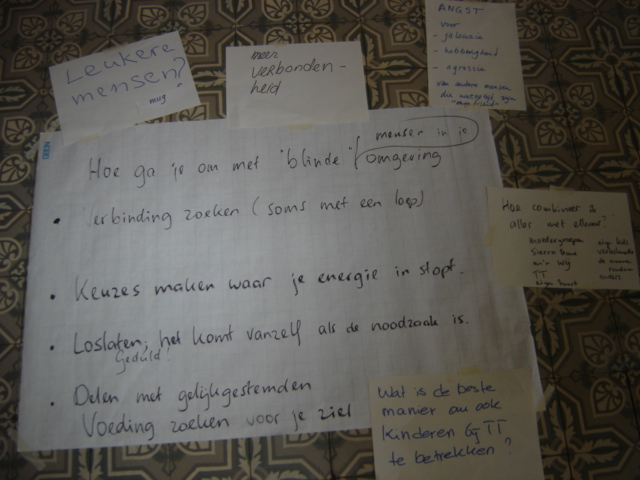 Leukere
mensen?
mug
meer
verbonden-
heid
ANGST
voor
- jaloezie
- hebberigheid
- agressie
van andere mensen
Hoe ga je om met "blinde" mensen in je
omgeving
• Verbinding zoeken (soms met een loep)
• Keuzes maken waar je energie in stopt.
• Loslaten, het komt vanzelf als de noodzaak is.
Geduld!
• Delen met gelijkgestemden
Voeding zoeken voor je ziel
Hoe combineer je
alles met elkaar?
moedergroepen
Sierra
TT
eigen buurt
eigen huis
Wat is de beste
manier om ook
kinderen bij TT
te betrekken?